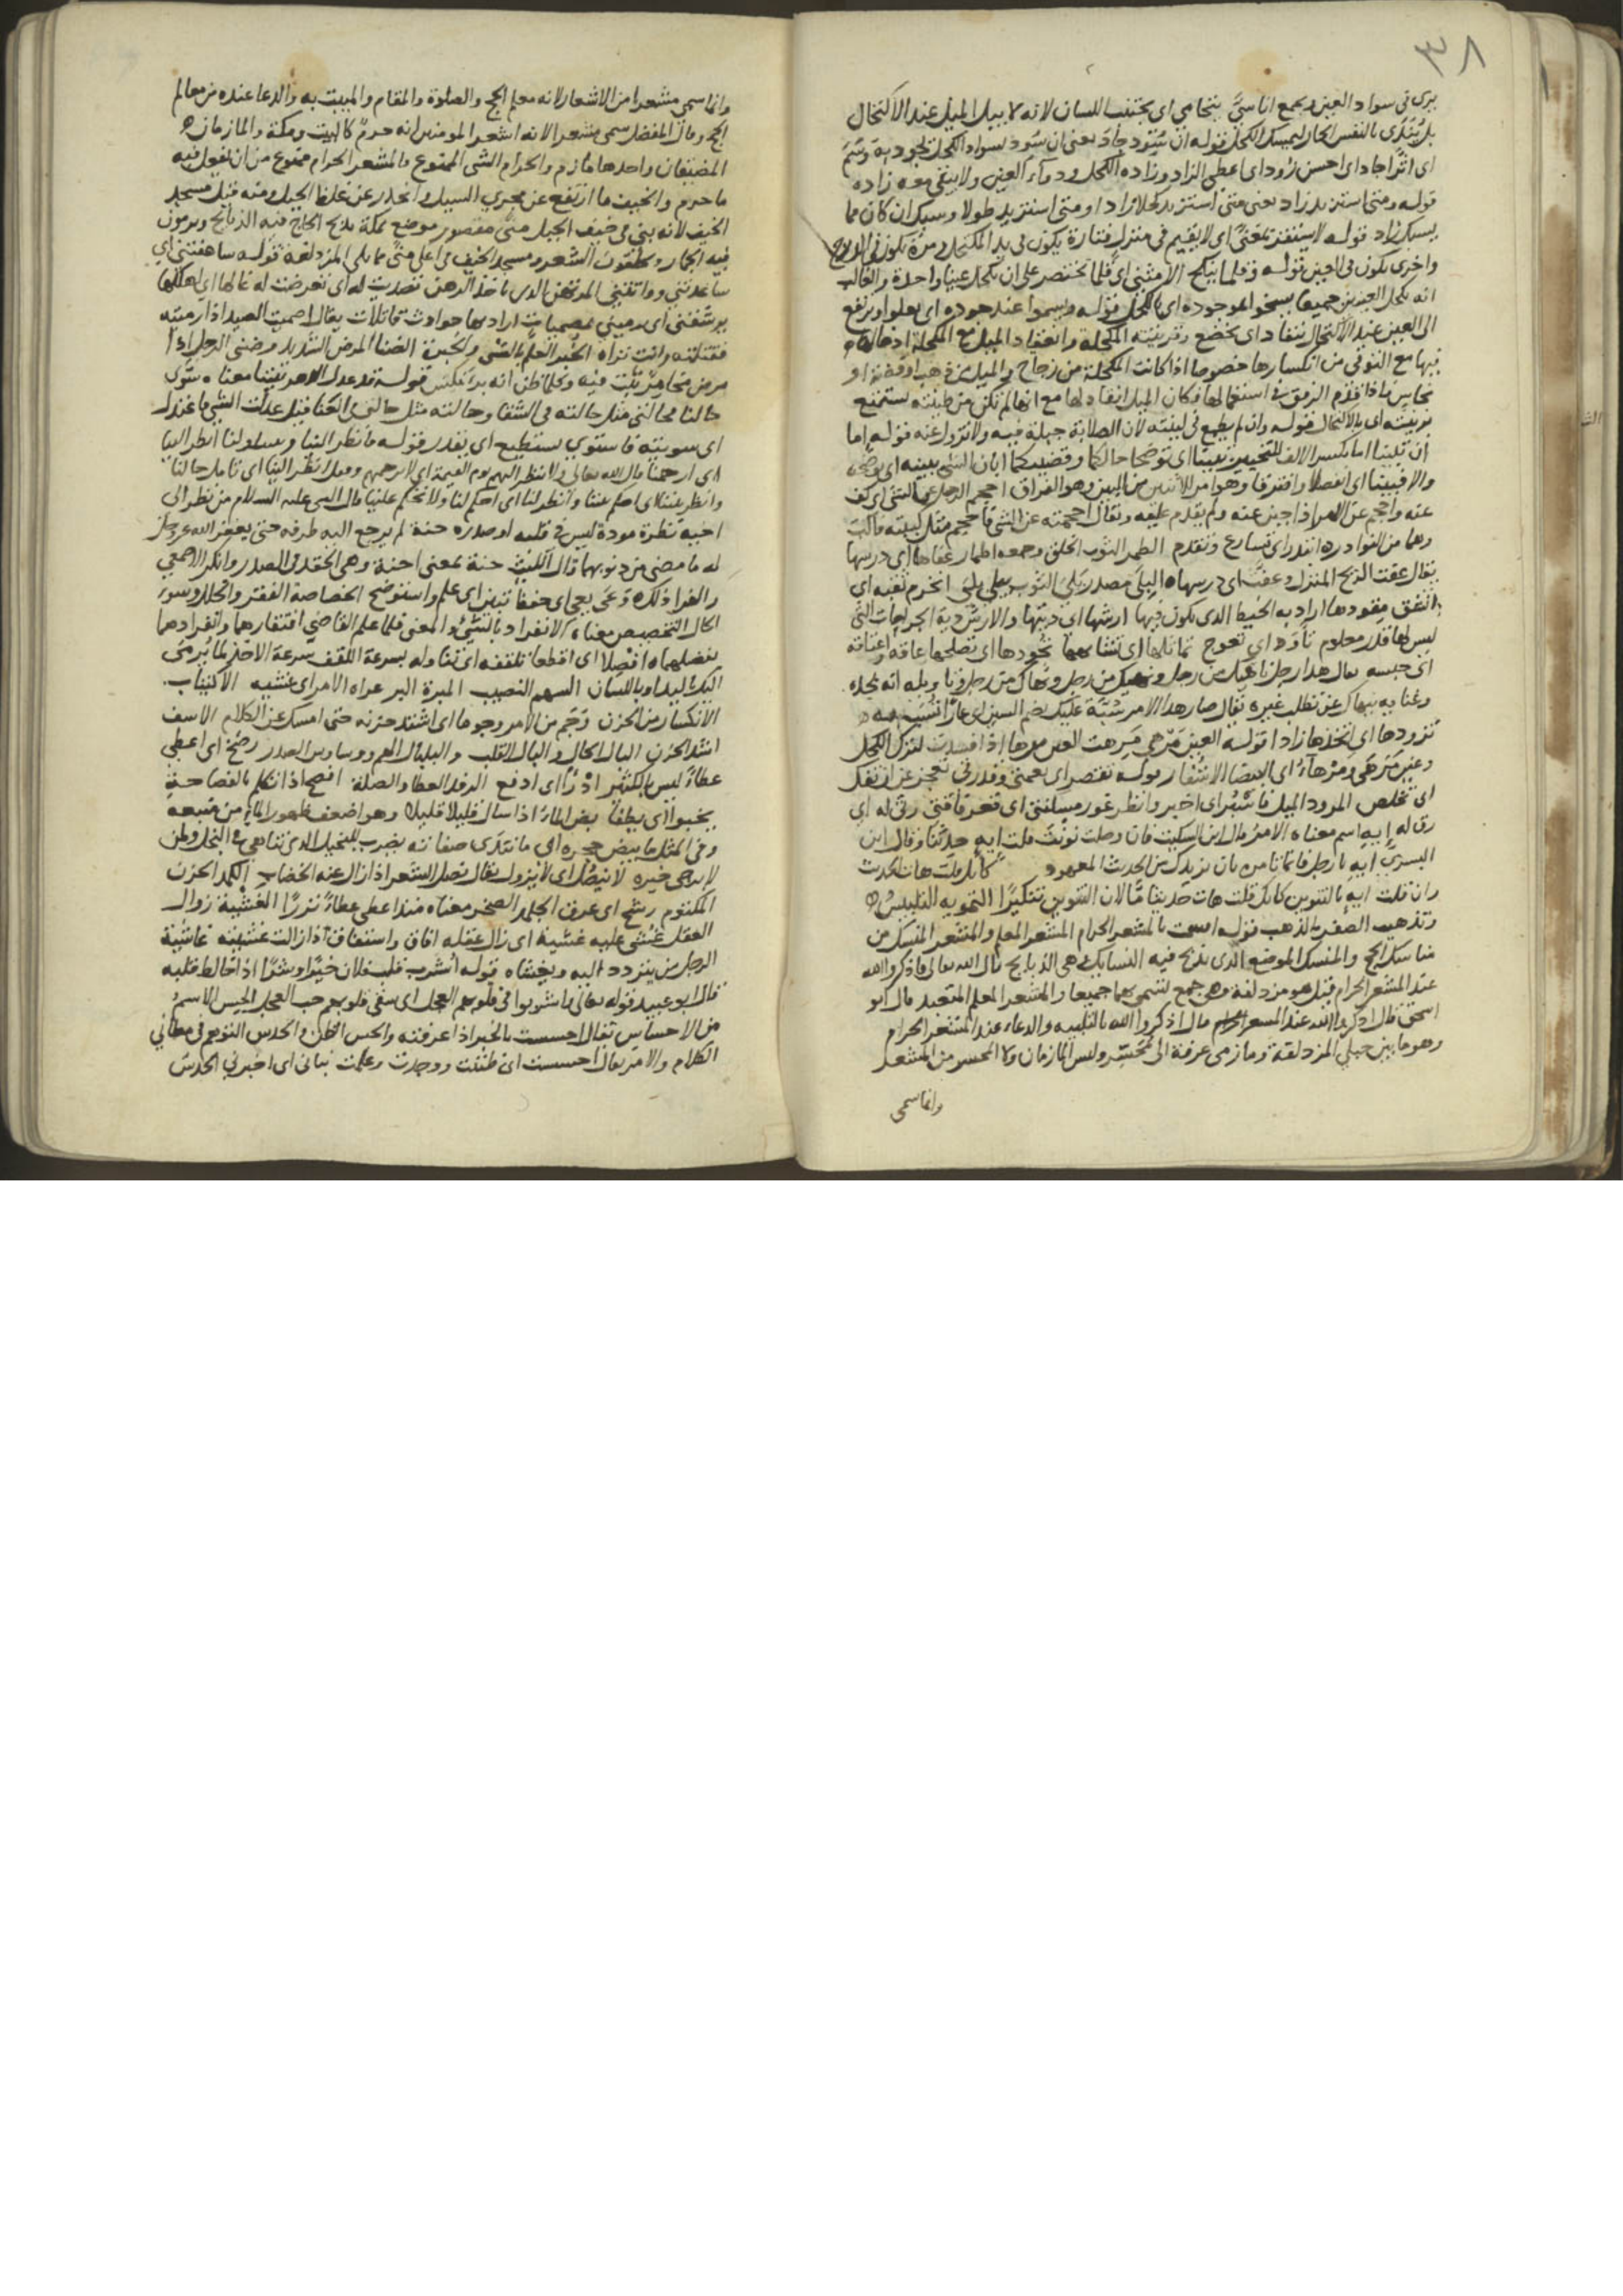 ٣٨
يرى فى سواد العين ويجمع اناسىّ يتحامى اى يجتنب اللسان لانه لا يبل الميل عند الاكتحال
بل يُندّى بالنفس الحار ليمسك الكحل قوله ان سُوّد جاد يعنى ان سُود بسواد الكحل تجود به وسَم
اى اثّر اجاد اى احسن زوّد اى اعطى الزاد وزاده الكحل ودواء العين ولا يبتغى معه زاده
قوله ومتى استزيد زاد يعنى متى استزيد كحلا زاد او متى استزيد طولا وسبك ان كان مما
يسبك زاد قوله لا يستقر بمغنًى اى لا يقيم فى منزل فتارة يكون فى يد المكتحل ومرة يكون فى
واخرى يكون فى العين قوله وقلما ينكح الا مثنى اى قلما تختصر على ان تكحل عينا واحدة والغالب
انه يكحل العينين جميعا يسخو الموجوده اى بالكحل قوله ويسموا عند جوده اى يعلوا ويرتفع
الى العين عند الاكتحال ينقاد اى يخضع وقرينته المكحلة وانعقاد الميل مع المكحلة ادخاله
فيها مع التوقى من انكسارها خصوصا اذا كانت المكحلة من زجاج والميل من ذهب او فضة او
نحاس فاذا قدّم الرفق فى استعمالها فكان الميل انقاد لها مع انها لم تكن من طينته يستمتع
بزينته اى بالاكتحال قوله وان لم يطمع فى لينته لان الصلابة جبلة فيه ولا تزول عنه قوله اما
ان تبينا اما بكسر الالف للتخيير تبينا اى توضحا حالكما وقضيتكما ابان الشى بينه اى توضح
والا فبينا اى انفصلا وافترقا وهو امر الاثنين من البين وهو الفراق احجم الرجل عن الشى اى كف
عنه واحجم عن الامر اذا جبن عنه ولم يقدم عليه ويقال احجمته عن الشى فاحجم مثل كببته فاكبّ
وهما من النوادر ابتدر اى تسارع وتقدم الطمر الثوب الخلق وجمعه اطمار عفاها اى درسها
يقال عفت الريح المنزل وعفّت اى درسها البلى مصدر بلى الثوب يبلى بلى انخرم ثقبه اى
انشق مقودها اراد به الخيط الذى يكون فيها ارشها اى ديتها والارش دية الجراحات التى
ليس لها قدر معلوم تأوّد اى تعوج تماثلها اى تشابهها تجوّدها اى تصلحها عاقه واعتاقه
اى حبسه يقال هذا رجل ناهيك من رجل ونهيك من رجل ونهاك من رجل وتاويله انه بجده
وغنايه ينهاك عن تطلب غيره يقال صار هذا الامر سُبّة عليك بضم السين اى عارا تُسَبّ به
تزوّدها اى اتخذها زادا قوله العين مَرْهَى مَرِهت العين مرها اذا فسدت لترك الكحل
وعين مَرْهَى ومَرْهاء اى البيضا الاشفار قوله تقتصر اى يعمنى وقدرتى يعجز عن ان تفك
اى تخلص المرود الميل فاسْبُر اى اختبر وانظر غور مسكنتى اى قعر فاقتى رثى له اى
رق له إيه اسم معناه الامر قال ابن السكيت فان وصلت نونت قلت ايهٍ حدّثنا وقال ابن
السرىّ ايهِ يا رجل فانما تامره بان يزيدك من الحديث المعهود كانك قلت هات الحديث
وان قلت ايهٍ بالتنوين كانك قلت هات حديثا مّا لان التنوين تنكيرًا التمويه التلبيس
وتذهيب الصفر بالذهب قوله اقسمت بالمشعر الحرام المشعر المعلم والمشعر المنسك من
مناسك الحج والمنسك الموضع الذى تذبح فيه النسايك وهى الذبايح قال الله تعالى فاذكروا الله
عند المشعر الحرام قيل هو مزدلفة وهى جمع تسمى بهما جميعا والمشعر المعلم المتعبد قال ابو
اسحق فاذكروا الله عند المشعر الحرام قال اذكروا الله بالتلبيه والدعاء عند المشعر الحرام
وهو ما بين جبلى المزدلفة ومازمى عرفة الى مُحَسِّر وليس المازمان ولا المحسر من المشعر
وانما سمى
وانما سمى مشعرا من الاشعار لانه معلم الحج والصلوة والمقام والمبيت به والدعا عنده من معالم
الحج وقال المفضل سمى مشعرا لانه اشعر المومنين انه حرمٌ كالبيت ومكة والمازمان
المضيقان واحدها مأزم والحرام والشى الممنوع فالمشعر الحرام ممنوع من ان يفعل فيه
ما حرم والخيف ما ارتفع عن مجرى السيل وانحدر عن غلظ الجبل ومنه قيل مسجد
الخيف لانه بنى فى خيف الجبل منًى مقصور موضع بمكة يذبح الحاج فيه الذبايح ويرمون
فيه الجمار ويحلقون الشعر ومسجد الخيف فى اعلى منًى مما يلى المزدلفة قوله ساعفتنى اى
ساعدتنى وواتتنى المرتهن الذى ياخذ الرهن تصديت له اى تعرضت له غالها اى اهلكها
يرشقنى اى يرمينى بمصميات اراد بها حوادث قاتلات يقال اصميت الصيد اذا رميته
فقتلته وانت تراه الخُبر العلم بالشى والخبرة الضنا المرض الشديد وضنى الرجل اذا
مرض مخامرٌ ثبت فيه وكلما ظن انه برأ نكس قوله قد عدل الدهر بيننا معناه سوّى
حالنا فحالتى مثل حالته فى الشقا وحالته مثل حالتى فى العنا قيل عدلت الشى فاعتدل
اى سويته فاستوى يستطيع اى يقدر قوله فانظر الينا وبيننا ولنا انظر الينا
اى ارحمنا قال الله تعالى ولا ينظر اليهم يوم القيمة اى لا يرحمهم وقيل انظر الينا اى تامل حالنا
وانظر بيننا اى اصلح بيننا وانظر لنا اى احكم لنا ولا تحكم علينا قال النبى عليه السلام من نظر الى
اخيه نظرة مودة ليس فى قلبه او صدره حنة لم يرجع اليه طرفه حتى يغفر الله عز وجل
له ما مضى من ذنوبهما قال الليث حنة بمعنى احنة وهى الحقد فى الصدر وانكر الاصمعى
والفرا ذلك وَعَى يعى اى حفظ تبين اى علم واستوضح الخصاصة الفقر والخلل وسوء
الحال التخصيص معناه الانفراد بالشىء والمعنى فلما علم القاضى افتقارهما وانفرادهما
بفضلهما افْصِلا اى اقطعا تلقفه اى تناوله بسرعة اللقف سرعة الاخذ لما يُرمى
اليك باليد او باللسان السهم النصيب المبرة البر عراه الامر اى غشيه الاكتئاب
الانكسار من الحزن وَجَم من الامر وجوما اى اشتد حزنه حتى امسك عن الكلام الاسف
اشد الحزن البال الحال والبال القلب والبلبال الهم ووساوس الصدر رضخ اى اعطى
عطاءً ليس بالكثير ادْرأ اى ادفع الرفد العطا والصلة افصح اذا تكلم بالفصاحة
يخبوا اى يطفا بض الماء اذا سال قليلا قليلا وهو اضعف ظهور الماء من منبعه
وفى المثل ما يبض حجره اى ما تندى صفاته يضرب للبخيل الذى تناهى فى البخل ولمن
لا يرجى خيره لا ينصُل اى لا يزول يقال نصل الشعر اذا زال عنه الخضاب الكمد الحزن
المكتوم رشح اى عرق الجلمد الصخر معناه منذ اعطى عطاءً نزرًا الغَشْية زوال
العقل غُشى عليه غشية اى زال عقله افاق واستفاق اذا زالت غشيته غاشية
الرجل من يتردد اليه ويغشاه قوله أُشرب قلب فلان خيرًا او شرًا اذا خالط قلبه
قال ابو عبيد قوله تعالى واشربوا فى قلوبهم العجل اى سقى قلوبهم حب العجل الحِس الاسمُ
من الاحساس يقال احسست بالخبر اذا عرفته والحس الظن والحدس التوهم فى معانى
الكلام والامر يقال احسست اى ظننت ووجدت وعلمت نبانى اى اخبرنى الحدسَ